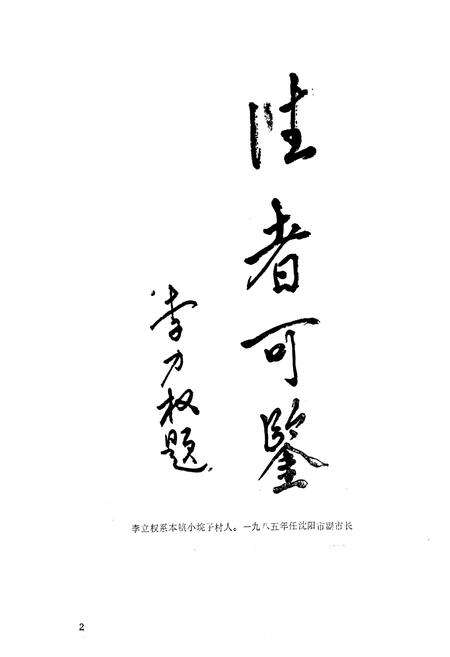 往者可鉴
李力权题
李立权系本镇小垸子村人。一九八五年任沈阳市副市长
2